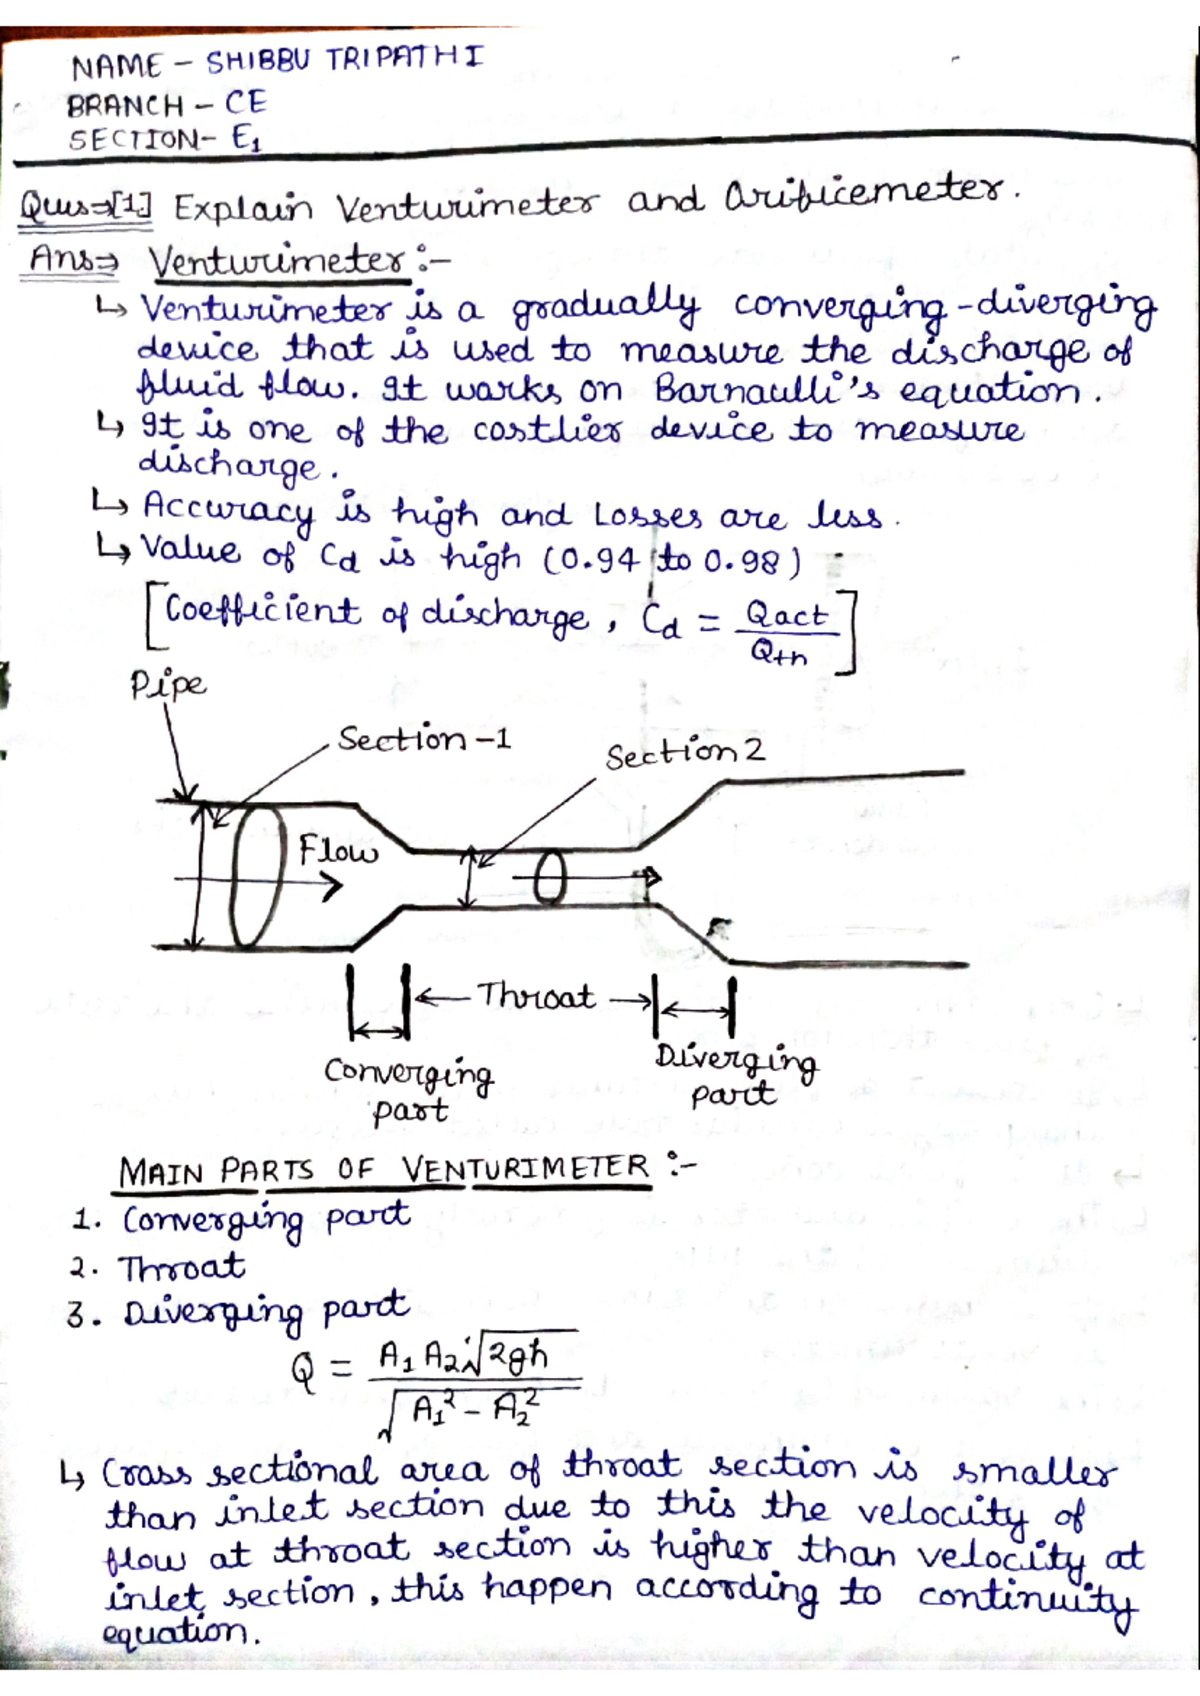 NAME - SHIBBU TRIPATHI
BRANCH - CE
SECTION- E1
Ques⇒[1] Explain Venturimeter and Orificemeter.
Ans⇒ Venturimeter :-
↳ Venturimeter is a gradually converging-diverging
device that is used to measure the discharge of
fluid flow. It works on Barnaulli's equation.
↳ It is one of the costlier device to measure
discharge.
↳ Accuracy is high and Losses are less.
↳ Value of Cd is high (0.94 to 0.98)
[Coefficient of discharge, Cd = Qact / Qth]
Pipe
Section-1
Section 2
Flow
← Throat →
Converging
part
Diverging
part
MAIN PARTS OF VENTURIMETER :-
1. Converging part
2. Throat
3. Diverging part
Q = A1 A2 √2gh / √A1² - A2²
↳ Cross sectional area of throat section is smaller
than inlet section due to this the velocity of
flow at throat section is higher than velocity at
inlet section, this happen according to continuity
equation.